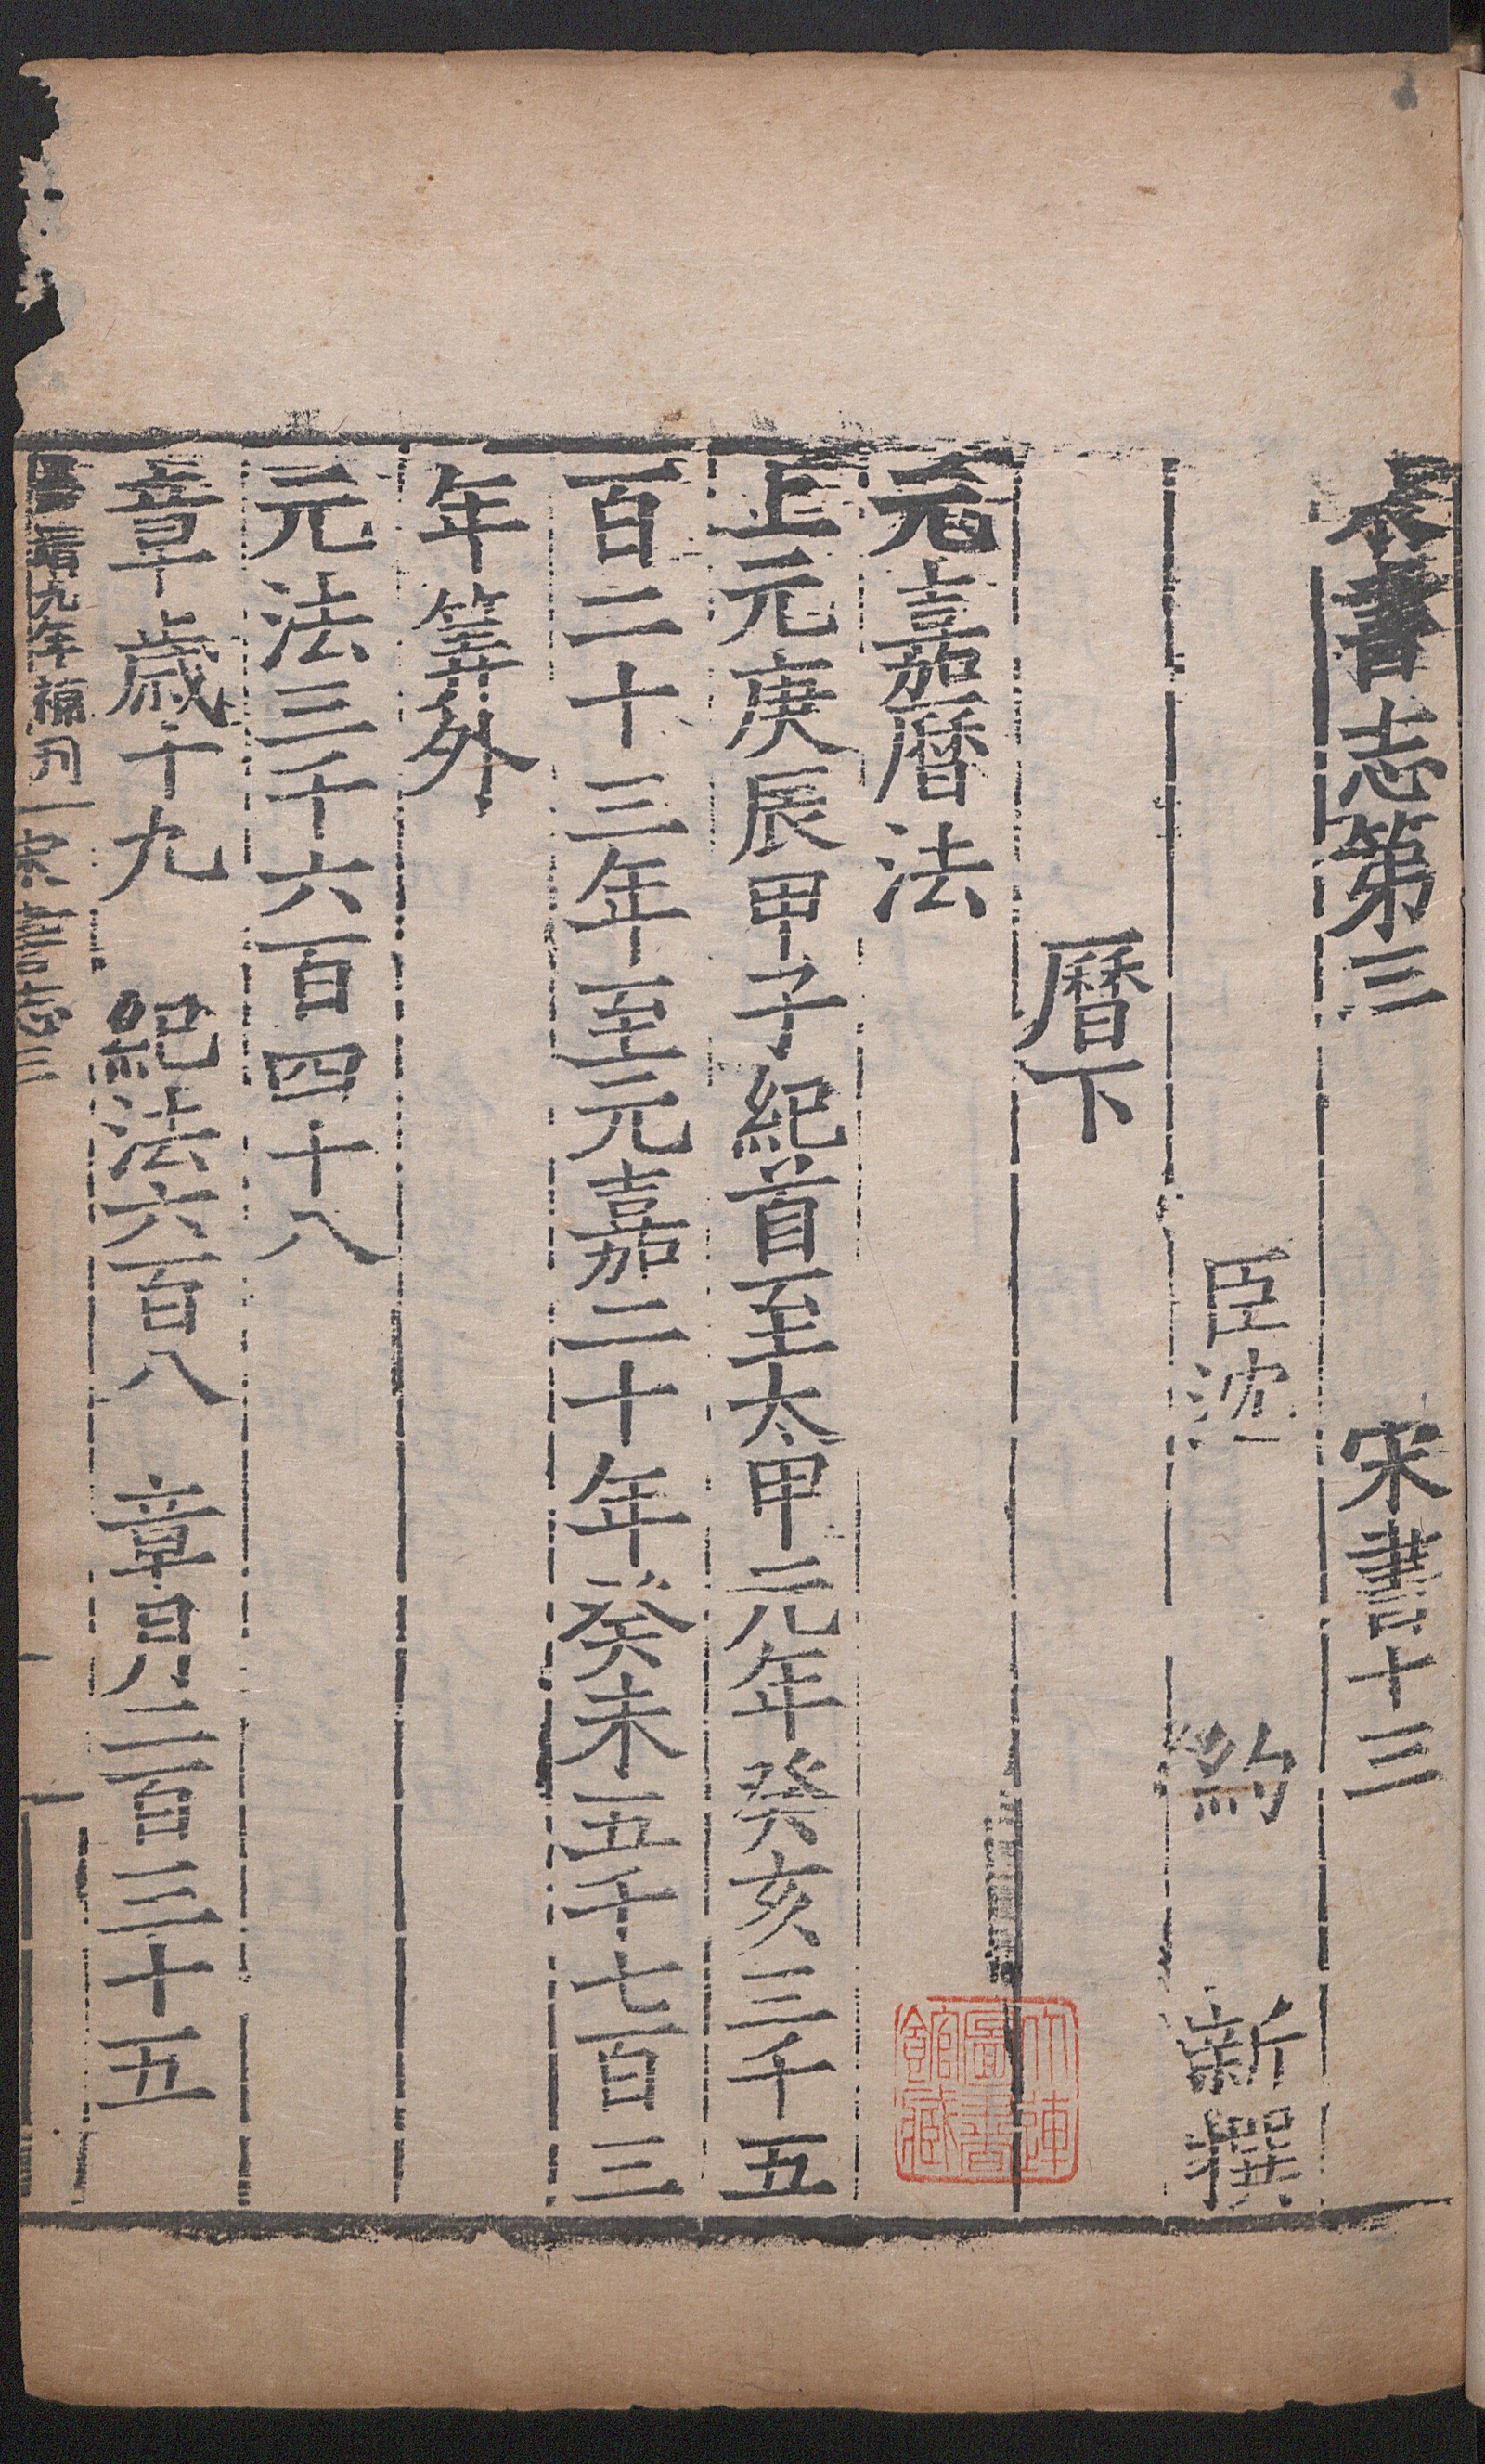 宋書志第三 宋書十三
臣沈 約 新撰
曆下
元嘉曆法
上元庚辰甲子紀首至太甲元年癸亥三千五
百二十三年至元嘉二十年癸未五千七百三
年筭外
元法三千六百四十八
章歲十九 紀法六百八 章月二百三十五
九年補刊 宋書志三
竹連
圖書
館藏